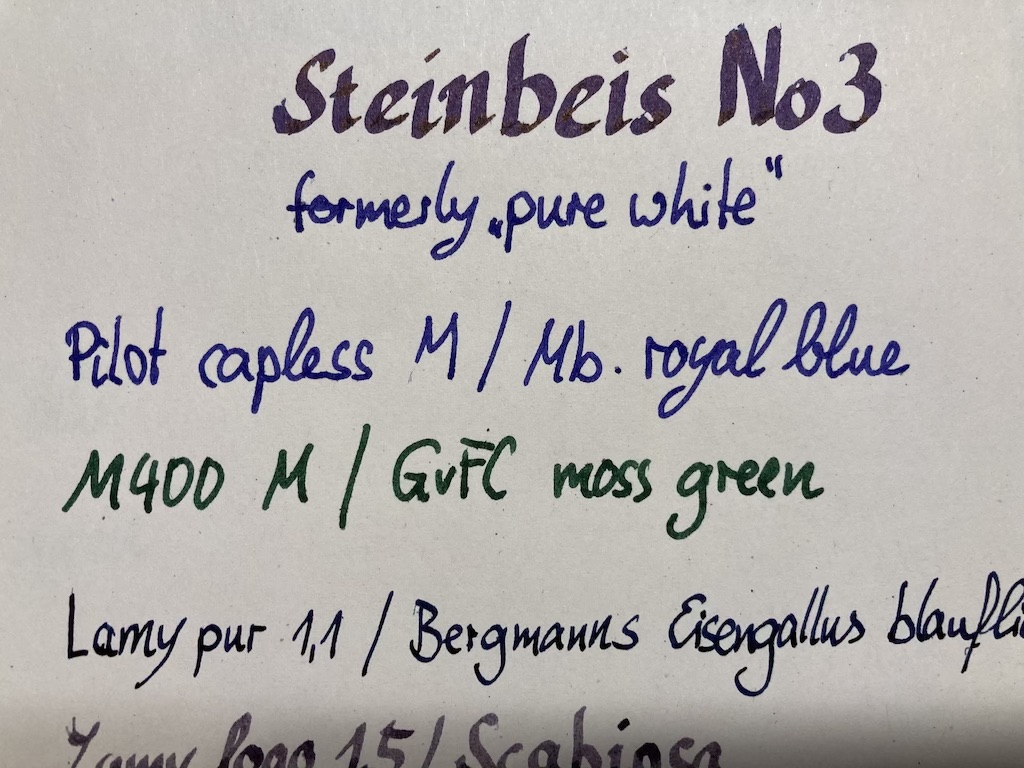 Steinbeis No3
formerly „pure white“
Pilot capless M / Mb. royal blue
M400 M / GvFC moss green
Lamy pur 1,1 / Bergmanns Eisengallus blaufli
Lamy logo 1,5 / Scabiosa